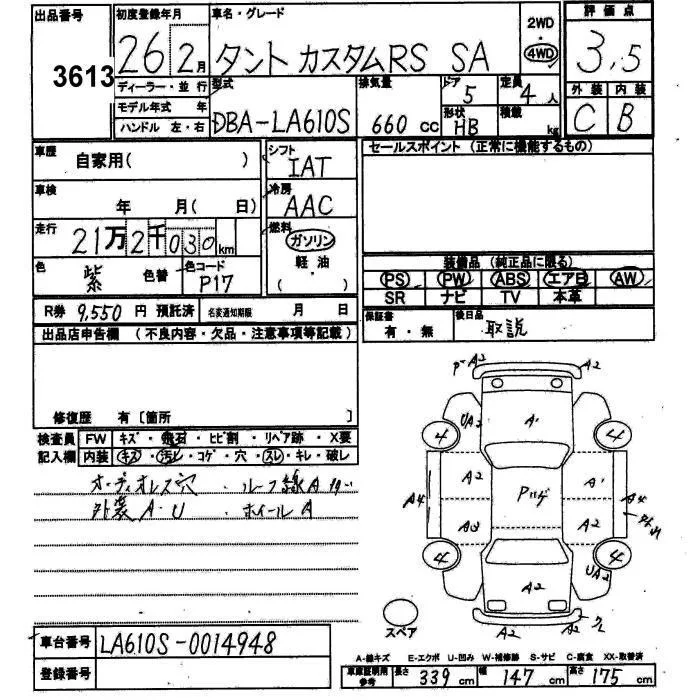 出品番号 3613
初度登録年月 26 2月
車名・グレード タント カスタムRS SA
2WD ・ 4WD
評価点 3.5
ディーラー・並行
モデル年式 年
ハンドル 左・右
型式 DBA-LA610S
排気量 660 cc
ドア 5
形状 HB
定員 4 人
積載 kg
外装 C
内装 B
車歴 自家用( )
シフト IAT
車検 年 月( 日)
冷房 AAC
走行 21万2千030km
燃料 ガソリン 軽油 ( ・ )
色 紫 色替
色コード P17
セールスポイント(正常に機能するもの)
装備品 (純正品に限る)
PS PW ABS エアB AW
SR ナビ TV 本革
R券 9,550 円 預託済
名変通知期限 月 日
保証書 有・無
後日品 取説
出品店申告欄 (不良内容・欠品・注意事項等記載)
修復歴 有〔箇所 〕
検査員記入欄
FW キズ・飛石・ヒビ割・リペア跡・X要
内装 キズ・汚レ・コゲ・穴・スレ・キレ・破レ
オーディオレス穴 ・ ルーフ線A
外装A・U ・ ホイールA
A2 A2
UA2 A1
4 4
A2 A1
A4 A4
A2 A2
4 4
UA2
A2
A2 A2
スペア
車台番号 LA610S-0014948
登録番号
A-線キズ E-エクボ U-凹み W-補修跡 S-サビ C-腐食 XX-取替済
車庫証明用参考 長さ 339 cm 幅 147 cm 高さ 175 cm